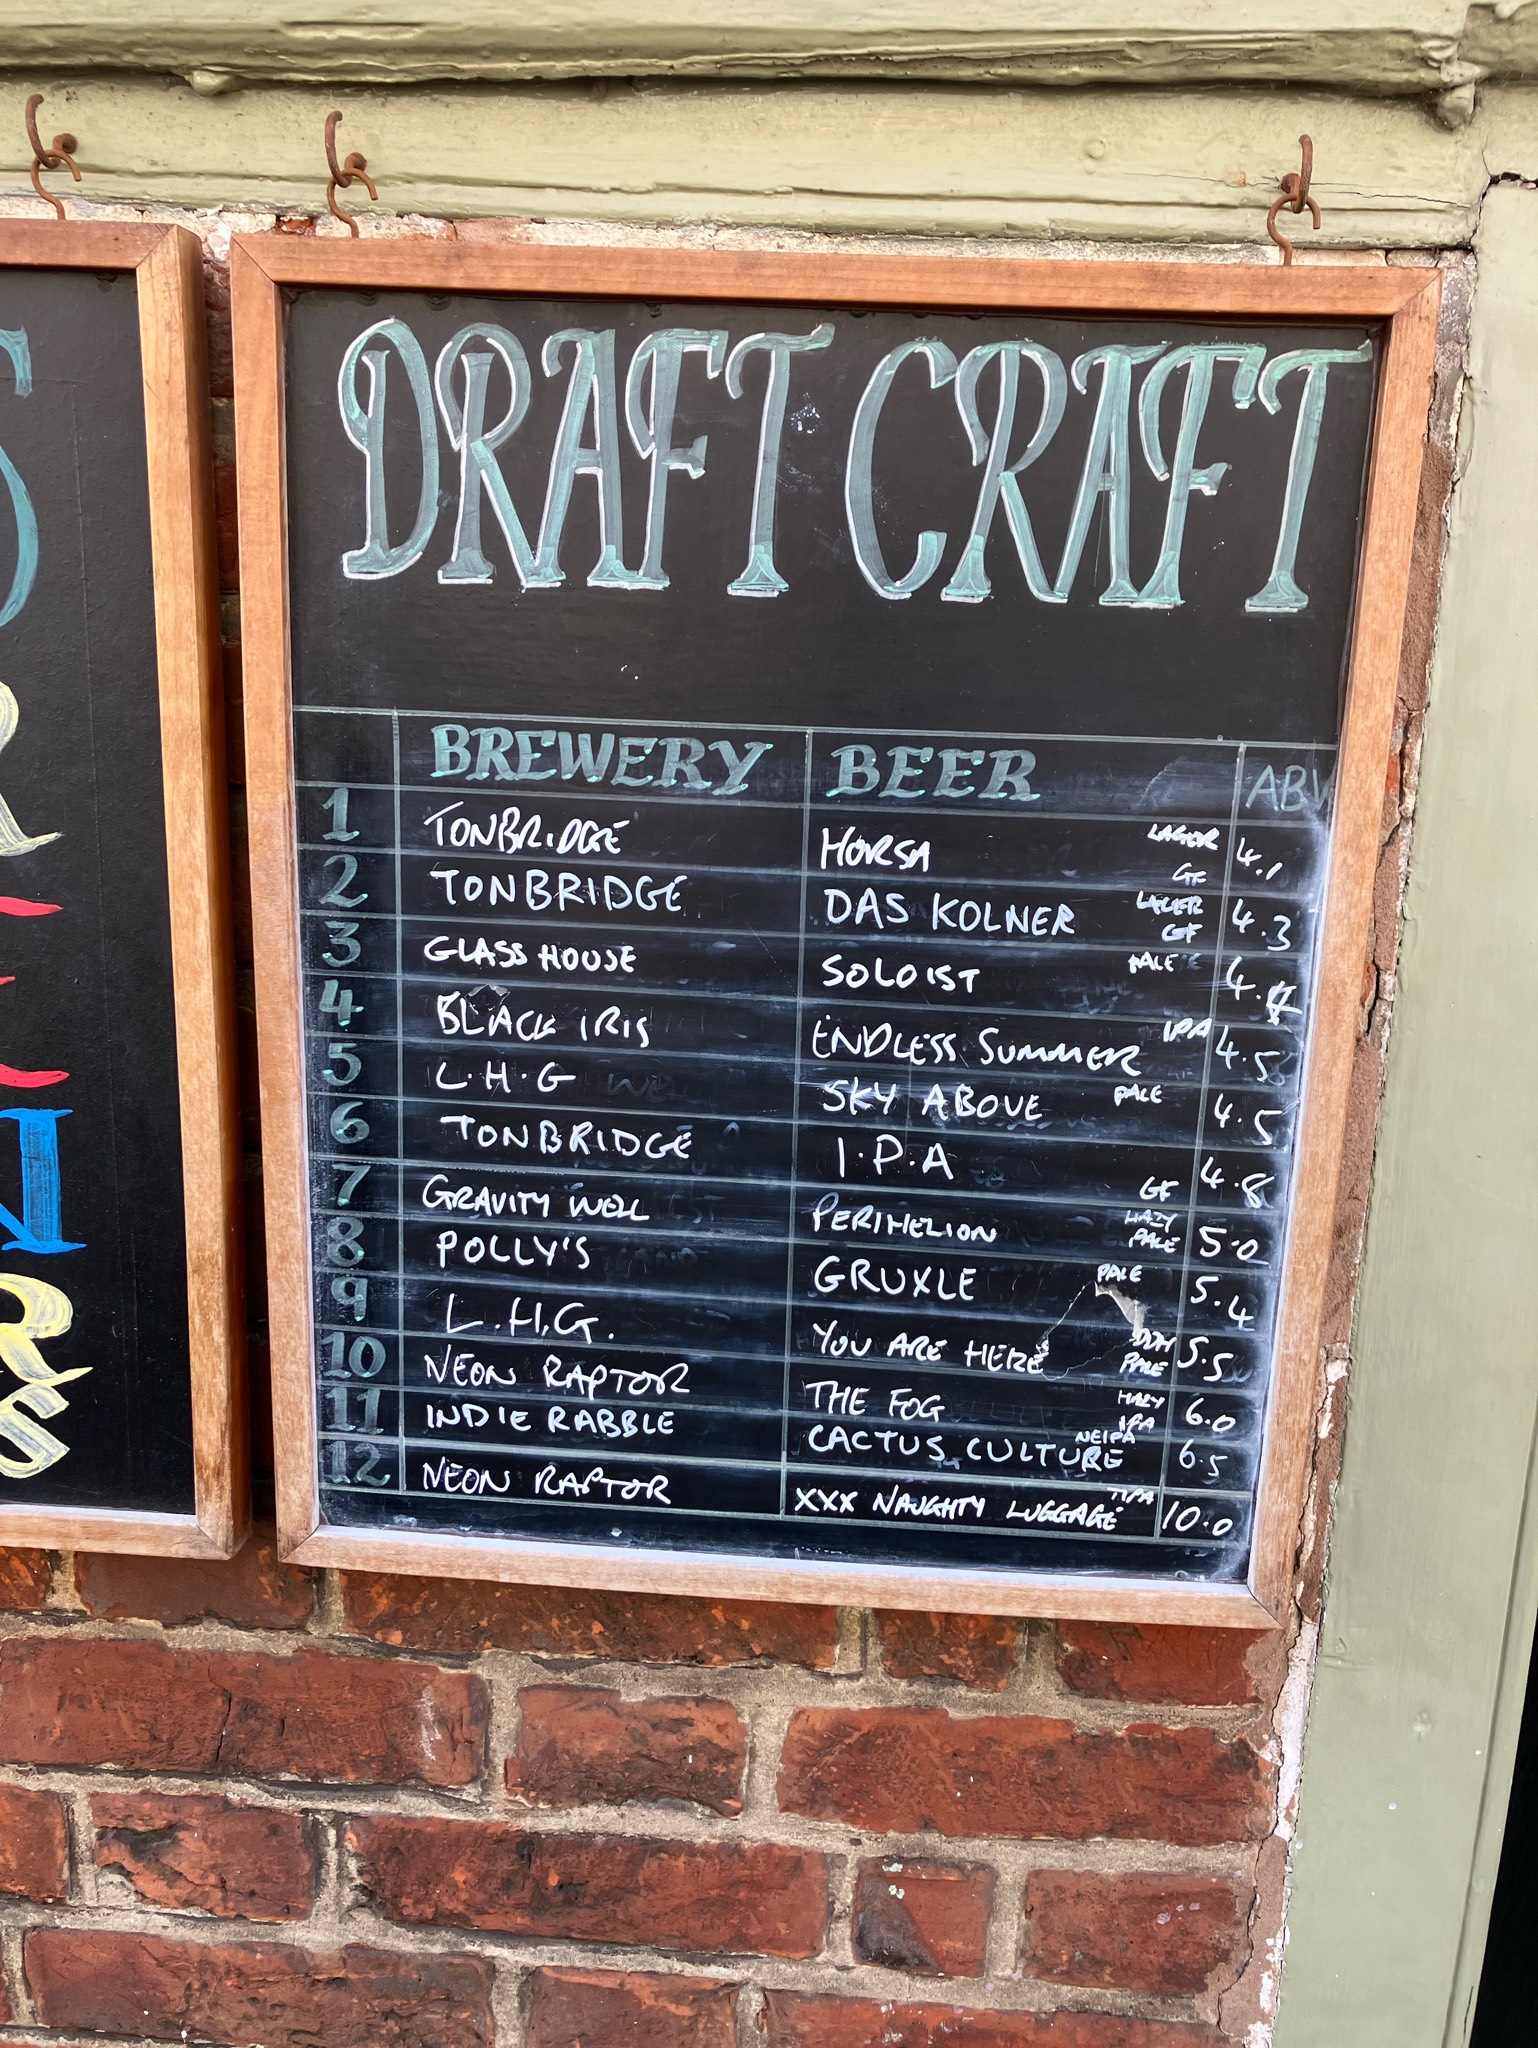 DRAFT CRAFT
BREWERY BEER ABV
1 TONBRIDGE HORSA LAGER GF 4.1
2 TONBRIDGE DAS KOLNER LAGER GF 4.3
3 GLASS HOUSE SOLOIST PALE 4.4
4 BLACK IRIS ENDLESS SUMMER IPA 4.5
5 L.H.G SKY ABOVE PALE 4.5
6 TONBRIDGE I.P.A GF 4.8
7 GRAVITY WELL PERIHELION HAZY PALE 5.0
8 POLLY'S GRUXLE PALE 5.4
9 L.H.G. YOU ARE HERE DDH PALE 5.5
10 NEON RAPTOR THE FOG HAZY IPA 6.0
11 INDIE RABBLE CACTUS CULTURE NEIPA 6.5
12 NEON RAPTOR XXX NAUGHTY LUGGAGE TIPA 10.0